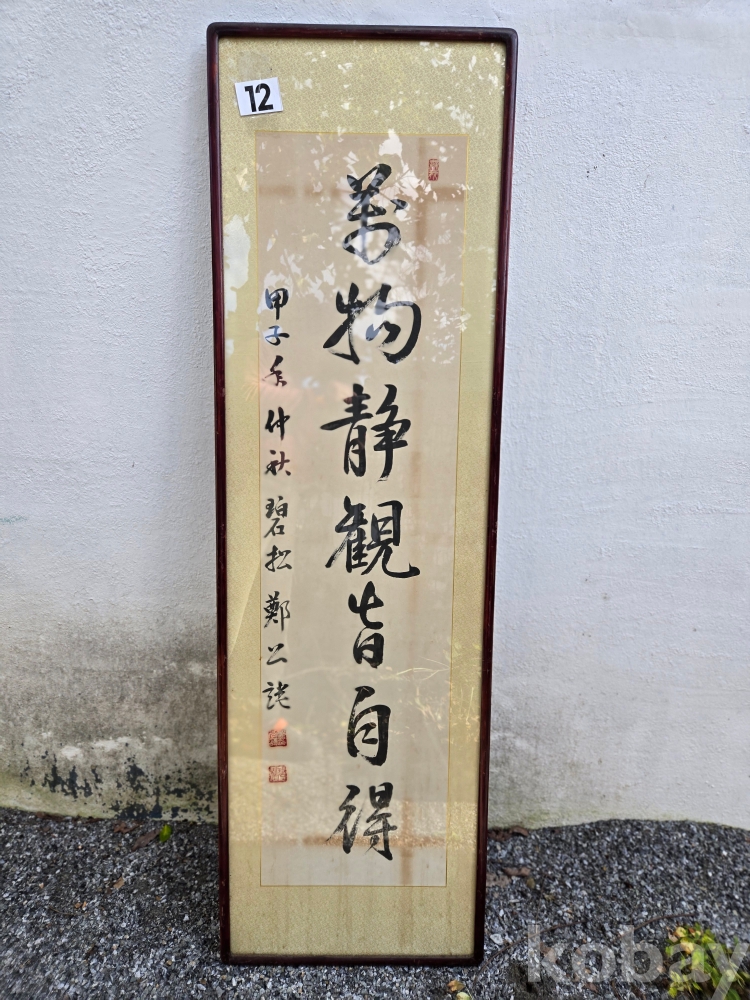 12
萬物静観皆自得
甲子秊仲秋 碧松 鄭公
kobay